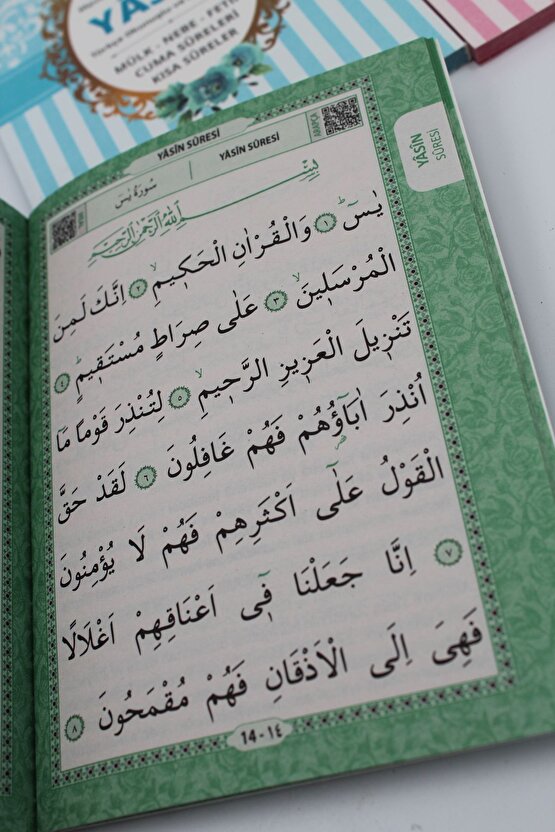 YÂSİN
MÜLK - NEBE - FETİH
CUMA SÛRELERİ
KISA SÛRELER
YÂSÎN SÛRESİ
سُورَةُ يٰسٓ
YÂSÎN SÛRESİ
ARAPÇA
YÂSÎN
SÛRESİ
بِسْمِ اللّٰهِ الرَّحْمٰنِ الرَّحِيمِ
يٰسٓۜ ﴿١﴾ وَالْقُرْاٰنِ الْحَكٖيمِۙ ﴿٢﴾ اِنَّكَ لَمِنَ
الْمُرْسَلٖينَۙ ﴿٣﴾ عَلٰى صِرَاطٍ مُسْتَقٖيمٍۜ ﴿٤﴾
تَنْزٖيلَ الْعَزٖيزِ الرَّحٖيمِۙ ﴿٥﴾ لِتُنْذِرَ قَوْمًا مَٓا
اُنْذِرَ اٰبَٓاؤُ۬هُمْ فَهُمْ غَافِلُونَ ﴿٦﴾ لَقَدْ حَقَّ
الْقَوْلُ عَلٰٓى اَكْثَرِهِمْ فَهُمْ لَا يُؤْمِنُونَ
﴿٧﴾ اِنَّا جَعَلْنَا فٖٓي اَعْنَاقِهِمْ اَغْلَالًا
فَهِيَ اِلَى الْاَذْقَانِ فَهُمْ مُقْمَحُونَ ﴿٨﴾
14 - ١٤